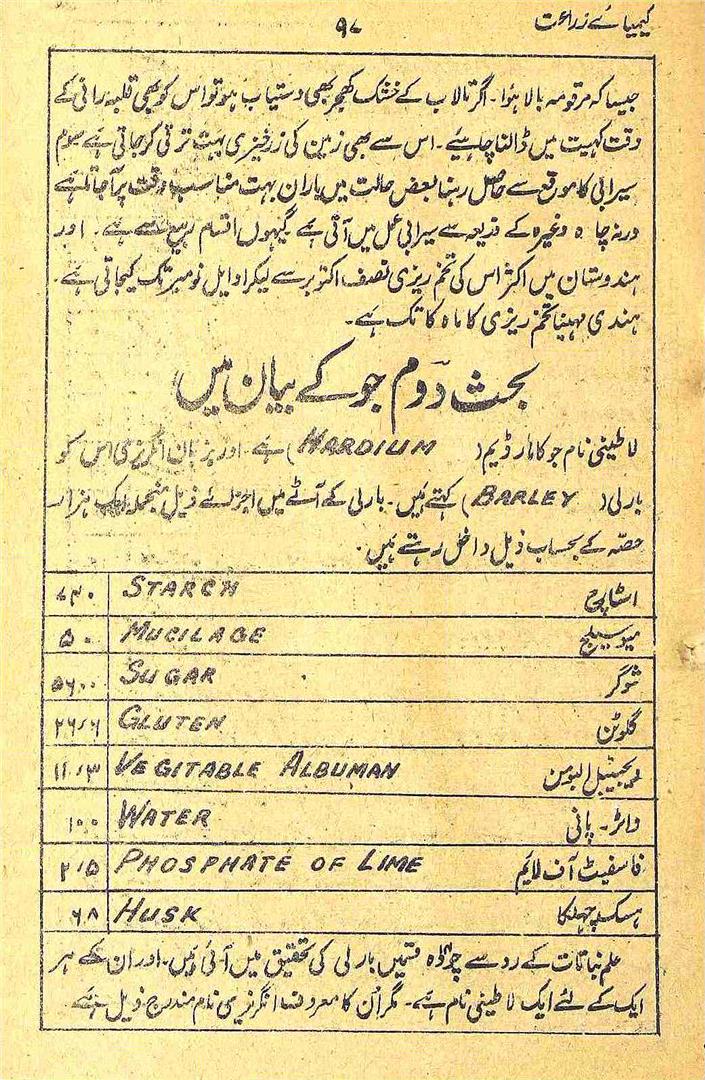 کیمیائے زراعت
۹۷
جیسا کہ مرقومہ بالا ہوا۔ اگر تالاب کے خشک کھچر بھی دستیاب ہو تو اس کو بھی قلبہ رانی کے
وقت کہیت میں ڈالنا چاہیئے۔ اس سے بھی زمین کی زرخیزی بہت ترقی کر جاتی ہے سوم
سیرابی کا موقع سے حاصل رہنا بعض حالت میں باران بہت مناسب وقت پر آجاتا ہے
ورنہ چاہ وغیرہ کے ذریعہ سے سیرابی عمل میں آتی ہے گیہوں اقسام ربیع سے ہے۔ اور
ہندوستان میں اکثر اس کی تخم ریزی نصف اکتوبر سے لیکر اوایل نومبر تک کیجاتی ہے۔
ہندی مہینا تخم ریزی کا ماہ کاتک ہے۔
بحث دوم جو کے بیان میں
لاطینی نام جو کا ہارڈیم (HARDIUM) ہے۔ اور بزبان انگریزی اس کو
بارلی (BARLEY) کہتے ہیں۔ بارلی کے آٹے میں اجزائے ذیل منجملہ ایک ہزار
حصّہ کے بحساب ذیل داخل رہتے ہیں۔
اسٹارچ STARCH
میوسیلیج MUCILAGE ۵۰
شوگر SUGAR
گلوٹن GLUTEN
ویجیٹیبل البومن VEGITABLE ALBUMAN
واٹر۔ پانی WATER ۱۰۰
فاسفیٹ آف لایم PHOSPHATE OF LIME
ہسک چھلکا HUSK ۶۸
علم نباتات کے رو سے چودہ قسمیں بارلی کی تحقیق میں آئی ہیں۔ اور ان کے ہر
ایک کے لئے ایک لاطینی نام ہے۔ مگر ان کا معروف انگریزی نام مندرج ذیل ہے